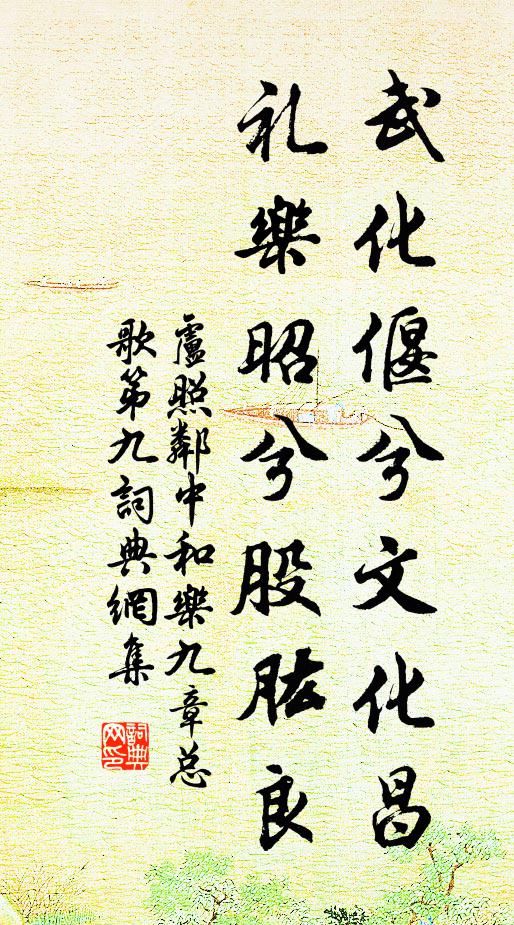 武化偃兮文化昌
礼樂昭兮股肱良
盧照鄰中和樂九章总
歌第九詞典網集
詞典网印